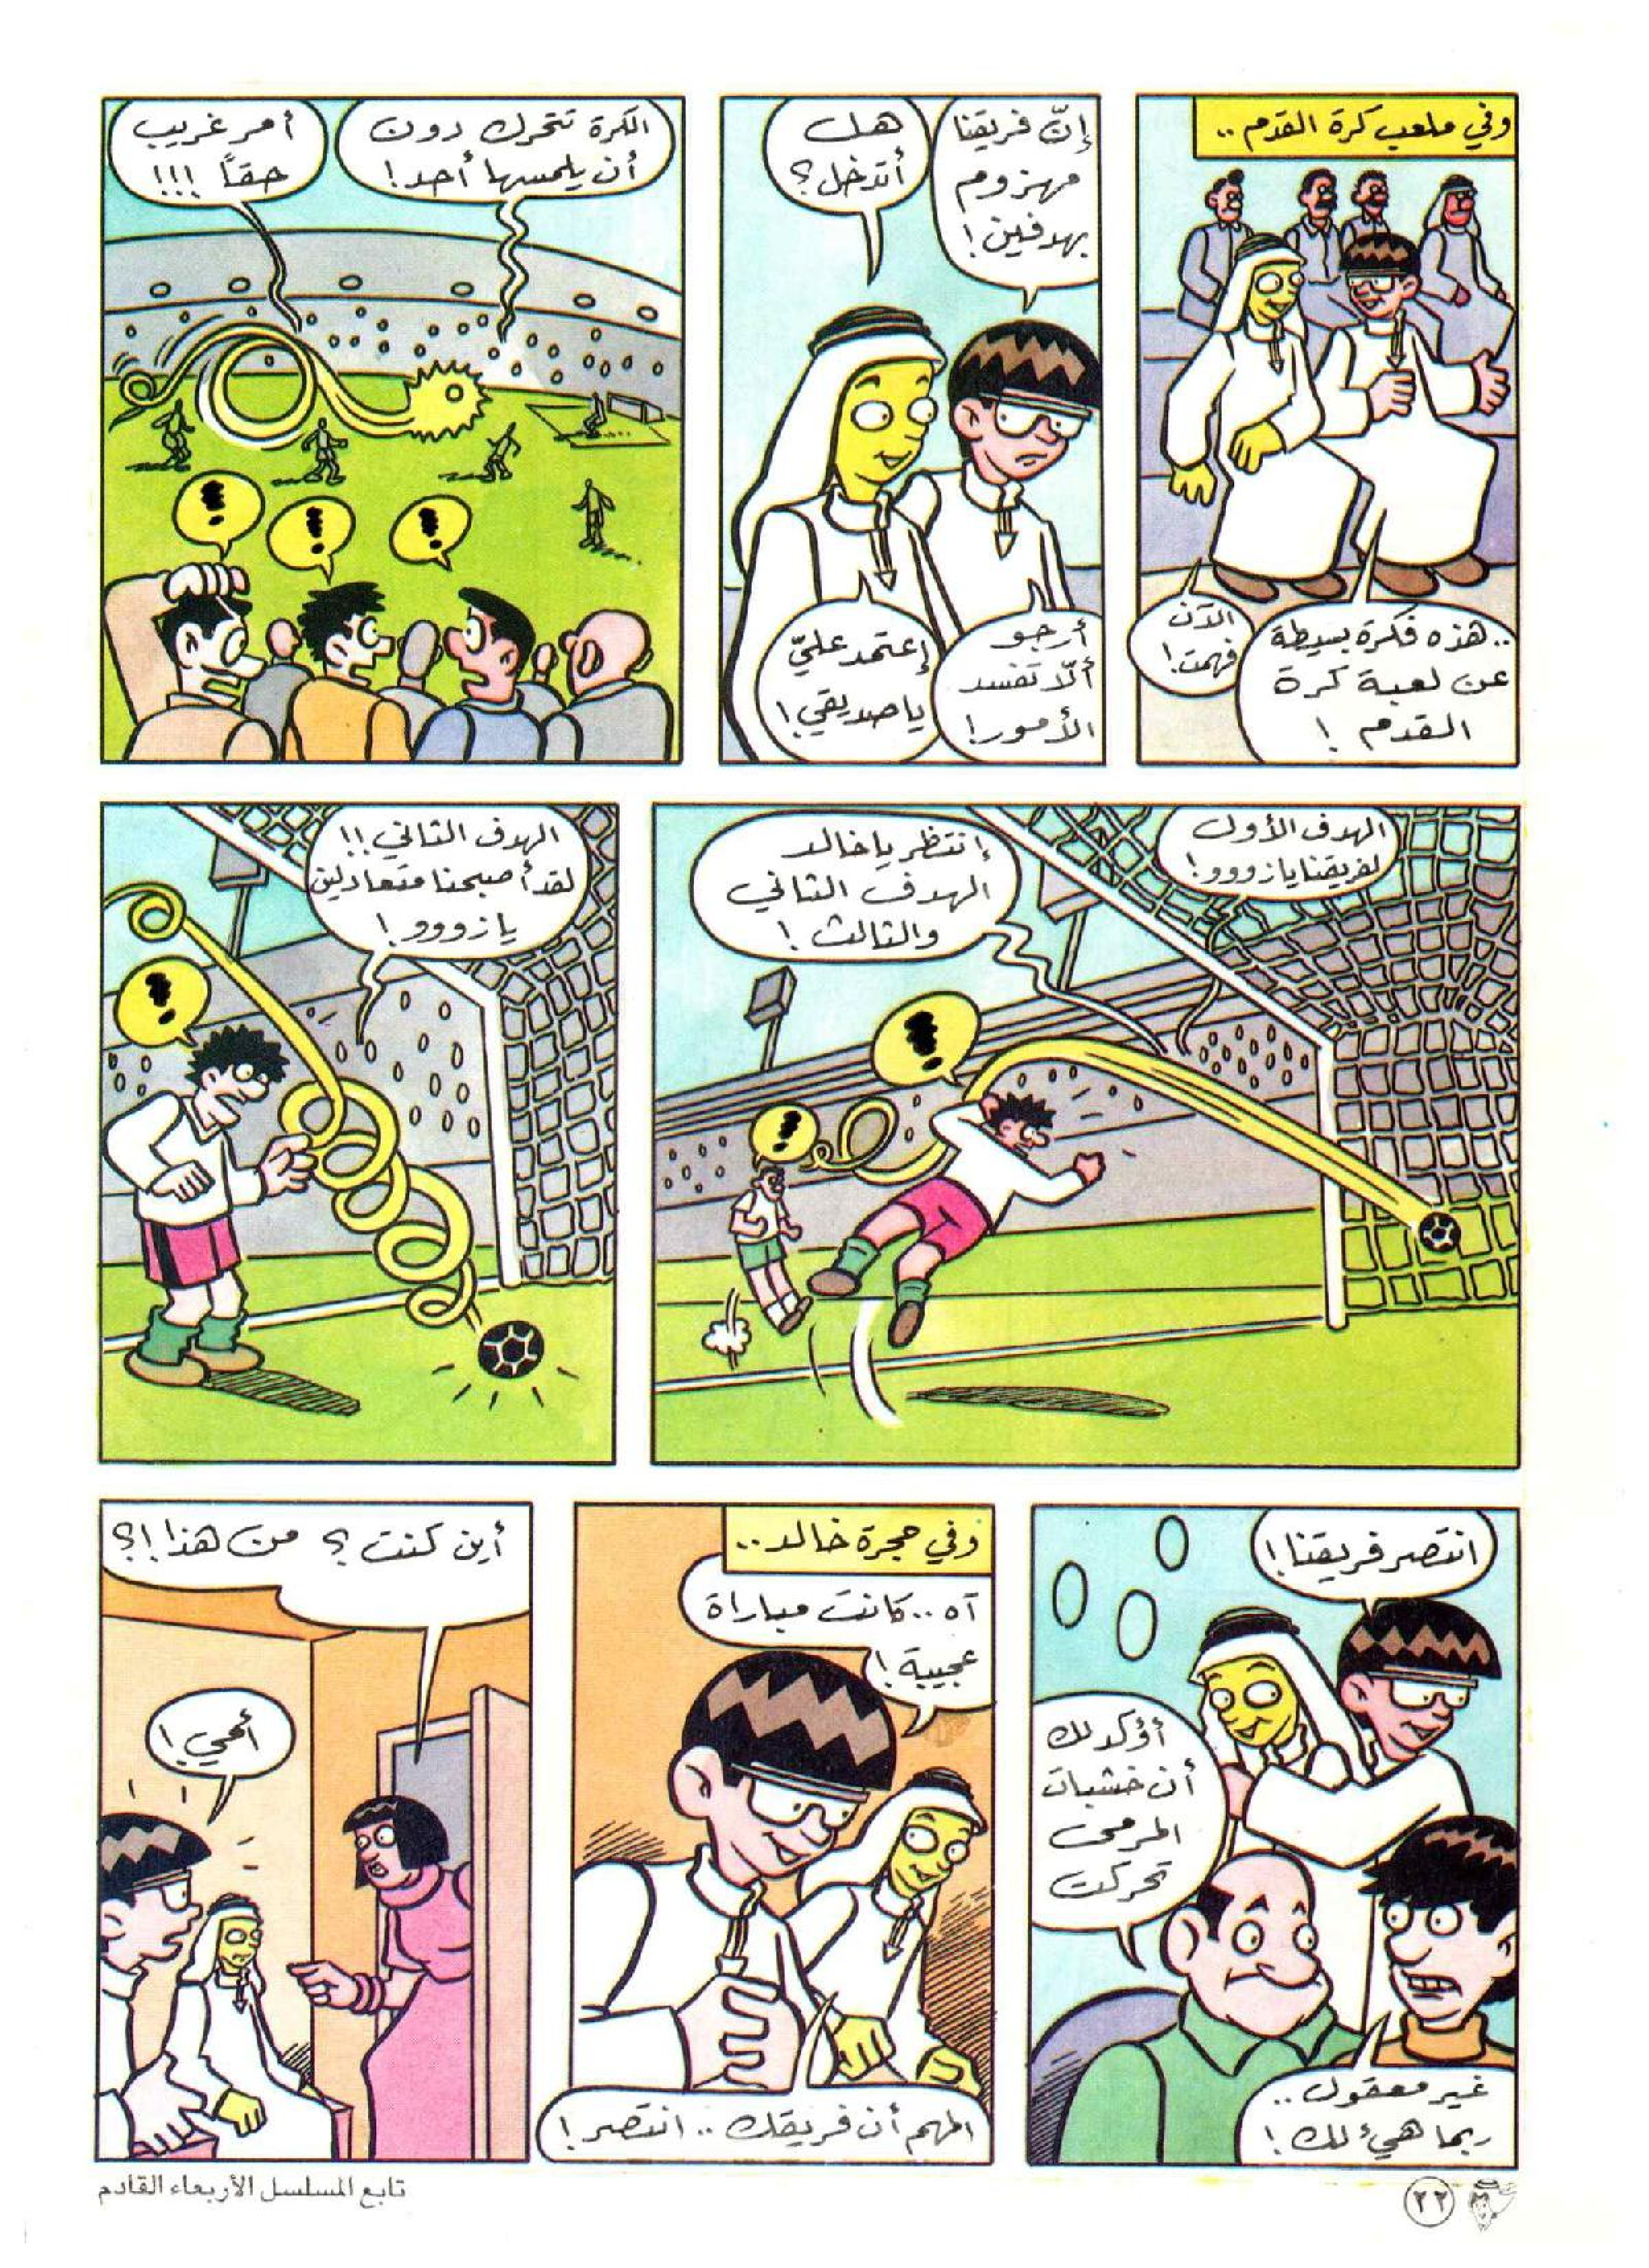 وفي ملعب كرة القدم ..
.. هذه فكرة بسيطة
عن لعبة كرة
القدم !
الآن
فهمت !
إنّ فريقنا
مهزوم
بهدفين !
هل
أتدخل ؟
أرجو
ألّا تفسد
الأمور !
إعتمد عليّ
يا صديقي !
الكرة تتحرك دون
أن يلمسها أحد !
أمر غريب
حقاً !!!
الهدف الأول
لفريقنا يا زووو !
إنتظر يا خالد
الهدف الثاني
والثالث !
الهدف الثاني !!
لقد أصبحنا متعادلين
يا زووو !
انتصر فريقنا !
أؤكد لك
أن خشبات
المرمى
تحركت
غير معقول ..
ربما هيء لك !
وفي حجرة خالد ..
آه .. كانت مباراة
عجيبة !
المهم أن فريقك .. انتصر !
أين كنت ؟ من هذا !؟
أمي !
٢٢
تابع المسلسل الأربعاء القادم